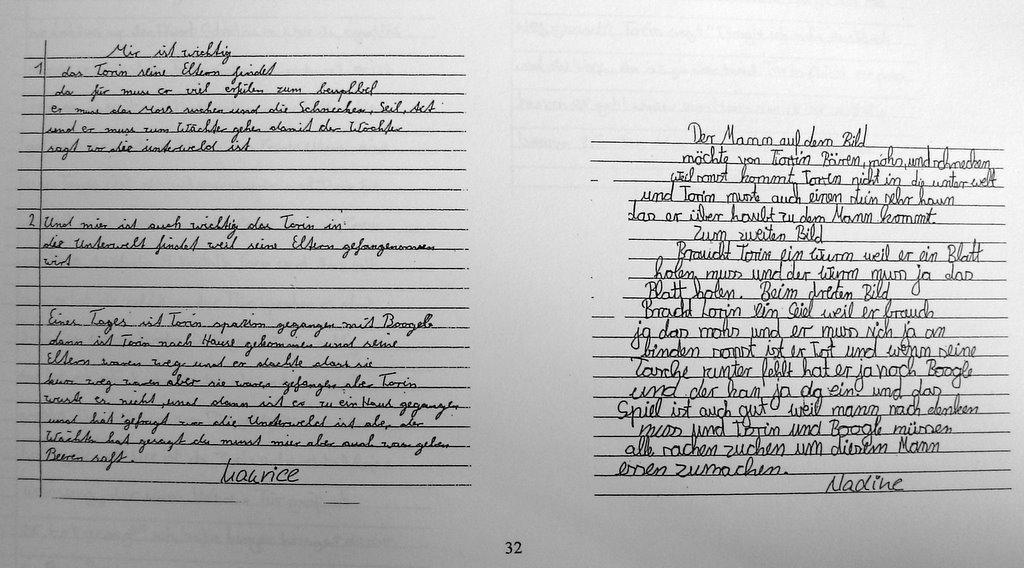 Mir ist wichtig
1 das Torin seine Eltern findet
da für muss er viel erfülen zum
er mus das Mors suchen und die Schnecken, Seil, Act
und er muss zum Wächter gehen damit der Wächter
sagt wo die unterweld ist
2 Und mier ist auch wichtig das Torin in
die Unterwelt findet weil seine Eltern gefangenommen
wirt
Eines Tages ist Torin spaziern gegangen mit Boogele
dann ist Torin nach Hause gekommen und seine
Eltern waren weg und er dachte dass sie
kurz weg waren aber sie waren gefangen aber Torin
wuste er nicht, und dann ist er zu ein Haus gegangen
und hat gefragt wo die Underweld ist aber der
Wächter hat gesagt du musst mier aber auch was geben
Beeren saft.
Maurice
Der Mann auf dem Bild
möchte von Torrin Bären, mohs, und schnecken,
weil sonst kommt Torren nicht in die unter welt
und Torin muste auch einen stein sehr haun
das er über haubt zu dem Mann kommt.
Zum zweiten Bild
Braucht Torin ein Wurm weil er ein Blatt
holen muss und der Wurm muss ja das
Blatt holen. Beim driten Bild
Bracht torin ein Seiel weil er brauch
ja das mohs und er muss sich ja an
binden sonnst ist er Tot und wenn seine
Tasche runter fehlt hat er ja noch Boogle
und der kan ja da ein. und das
Spiel ist auch gut weil mann nach denken
muss und Torin und Boogle müssen
alle sachen zuchen um diesem Mann
essen zumachen.
Nadine
32